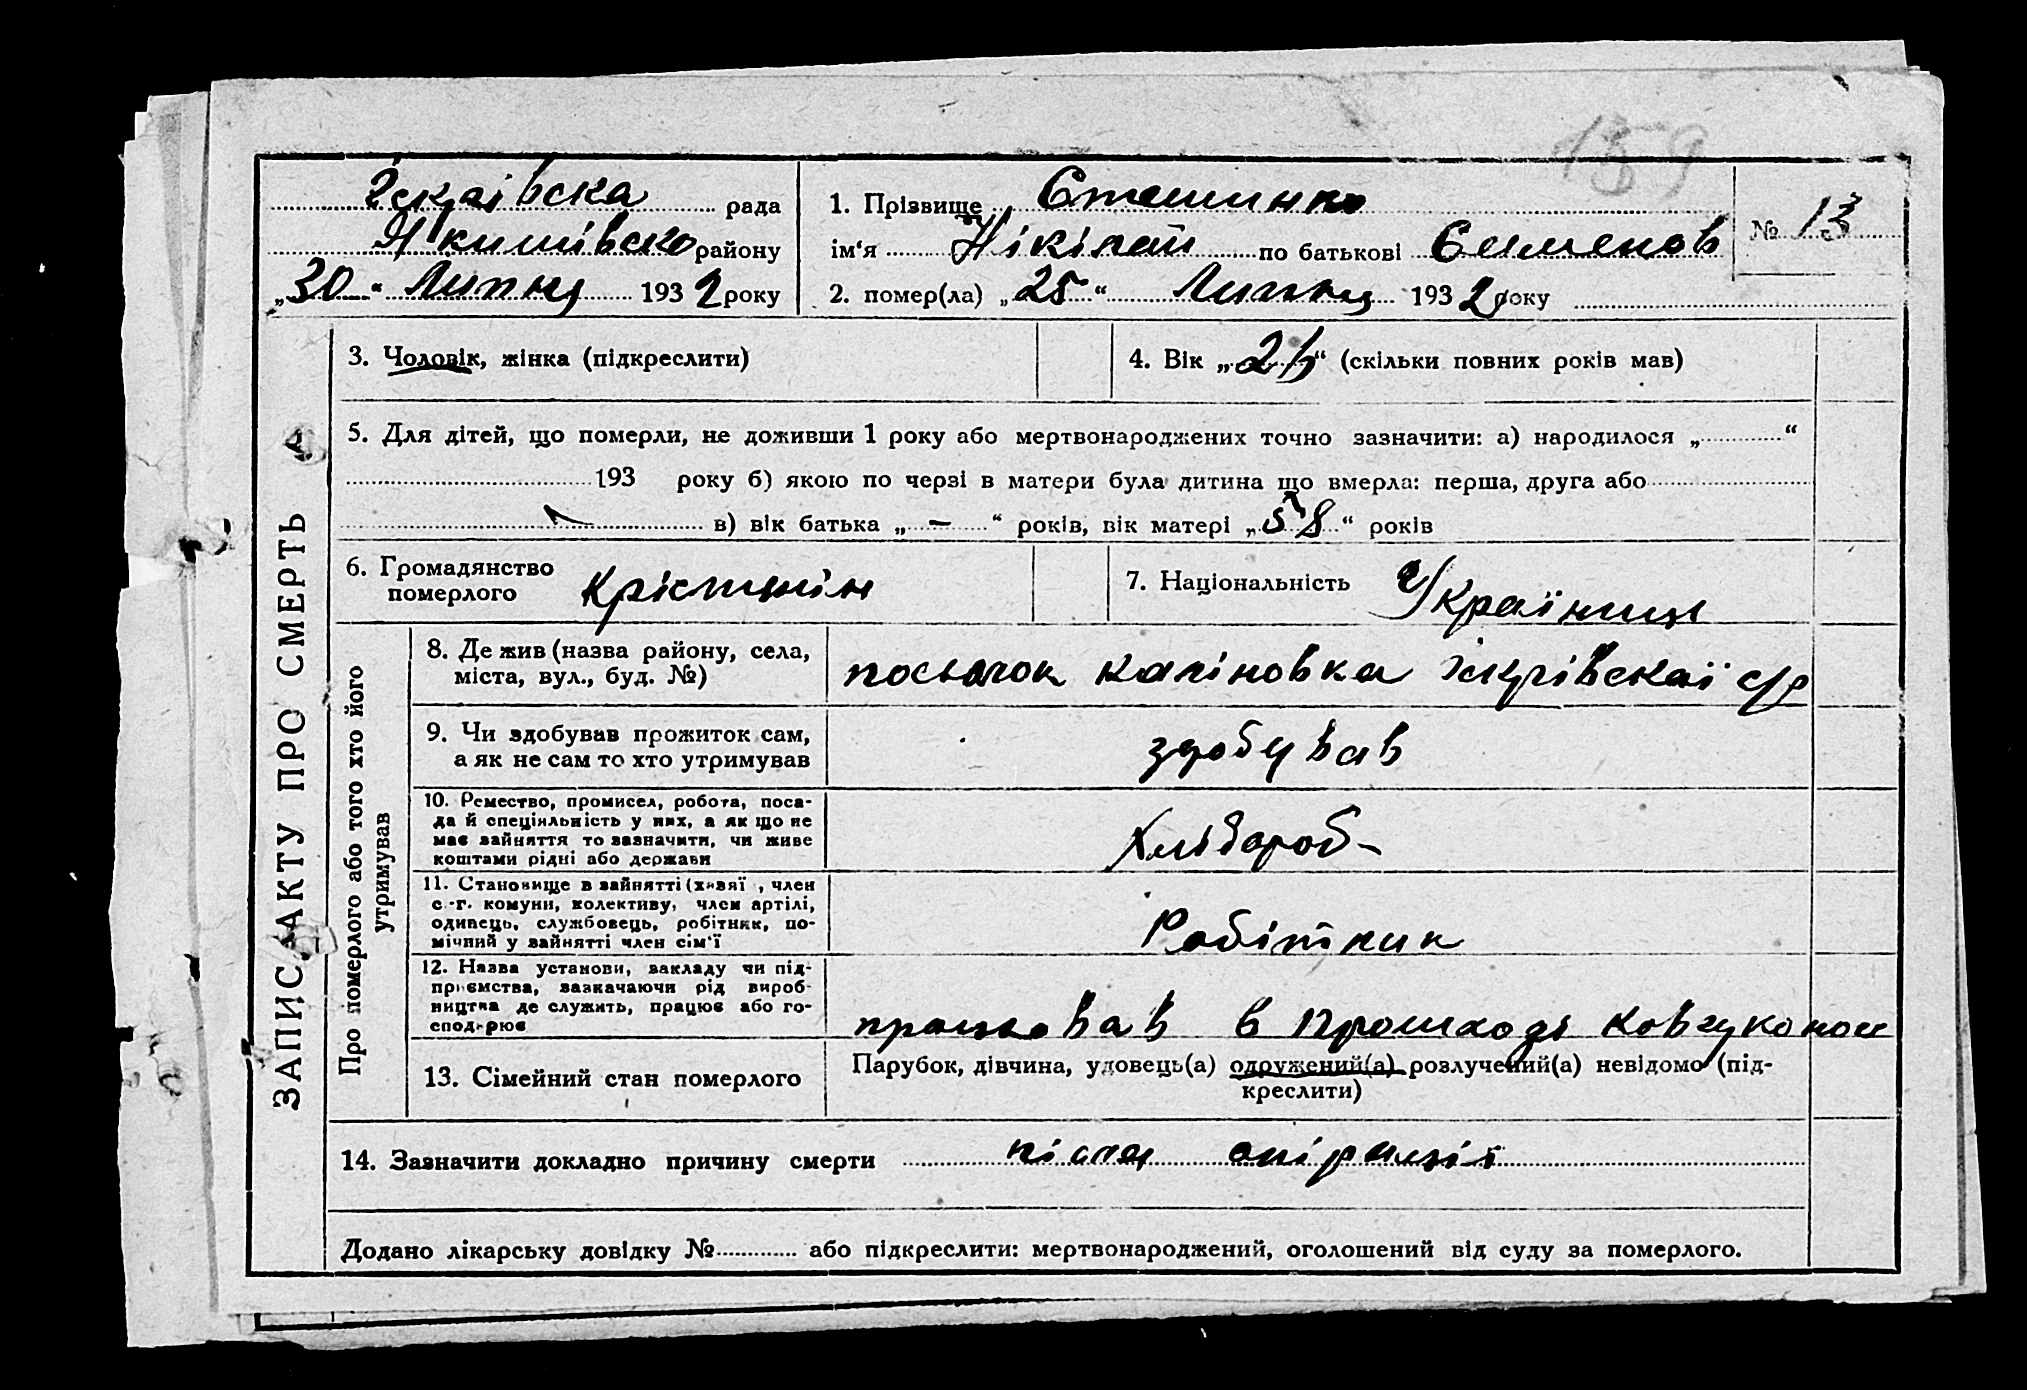 159
рада
району
„30“ Липня 1932 року
1. Прізвище
ім‘я Нікіпай по батькові Семенов
2. помер(ла) „25“ Липня 1932 року
№ 13
ЗАПИС АКТУ ПРО СМЕРТЬ
3. Чоловік, жінка (підкреслити)
4. Вік „ “ (скільки повних років мав)
5. Для дітей, що померли, не доживши 1 року або мертвонароджених точно зазначити: а) народилося „ “
193 року б) якою по черзі в матери була дитина що вмерла: перша, друга або
в) вік батька „ — “ років, вік матері „58“ років
6. Громадянство
померлого
7. Національність Українець
Про померлого або того хто його
утримував
8. Де жив (назва району, села,
міста, вул., буд. №)
посьолок Каліновка с/р
9. Чи здобував прожиток сам,
а як не сам то хто утримував
здобував
10. Ремество, промисел, робота, поса-
да й спеціяльність у них, а як що не
має зайняття то зазначити, чи живе
коштами рідні або держави
Хлібороб-
11. Становище в зайнятті (хазяї , член
с.-г. комуни, колективу, член артілі,
одинець, службовець, робітник, по-
мічний у зайнятті член сім‘ї
Робітник
12. Назва установи, закладу чи під-
приємства, зазначаючи рід вироб-
ництва де служить, працює або го-
сподарює
працював в
13. Сімейний стан померлого
Парубок, дівчина, удовець(а) одружений(а) розлучений(а) невідомо (під-
креслити)
14. Зазначити докладно причину смерти після опірації
Додано лікарську довідку № або підкреслити: мертвонароджений, оголошений від суду за померлого.